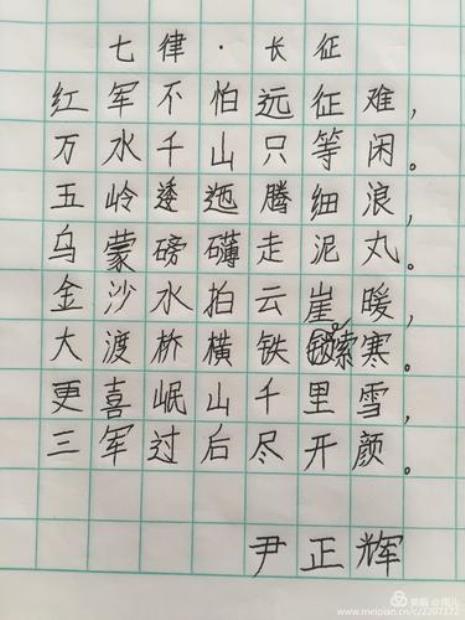 七律·长征
红军不怕远征难，
万水千山只等闲。
五岭逶迤腾细浪，
乌蒙磅礴走泥丸。
金沙水拍云崖暖，
大渡桥横铁索寒。
更喜岷山千里雪，
三军过后尽开颜。
尹正辉
美篇
www.meipian.cn/c/2207172